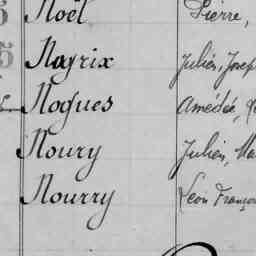 Noël Pierre,
Nogrix Julien, Josep
Nogues Amédée,
Noury Julien, Ma
Nourry Léon Françoi